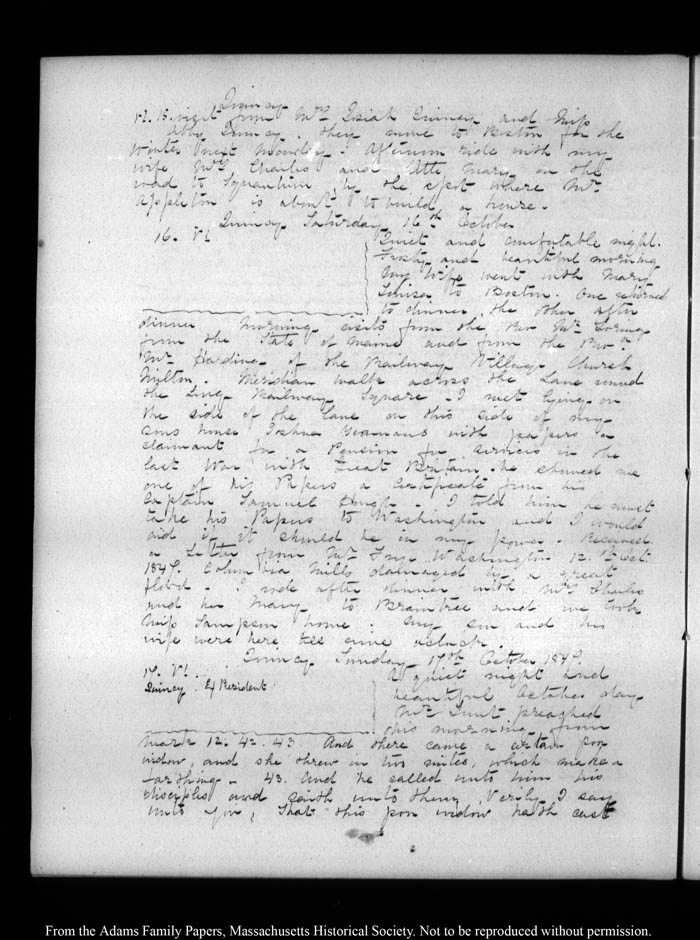 Quincy
12. 15. visit from Mrs Josiah Quincy and Miss
Abby Quincy. they move to Boston for the
Winter next Monday. Afternoon ride with my
wife Mrs Charles and little Mary on the
road to Squantum, by the spot where Mr
Appleton is about to build a house.
Quincy Saturday 16th October
16. VI
Quiet and comfortable night.
Frosty and beautiful morning
My wife went with Mary
Louisa to Boston. One returned
to dinner, the other after
dinner Morning visits from the Rev Mr
from the State of Maine and from the Revd
Mr Harding of the Railway Village Church
Milton. Meridian walk across the Lane round
the Railway Square. I met lying on
the side of the lane on this side of my
sons house Joshua Yeamans with papers a
claimant for a Pension for services in the
last War with Great Britain. he showed me
one of his Papers a certificate from his
Captain Samuel. I told him he must
take his Papers to Washington and I would
aid if it should be in my power. Received
a Letter from Mr Fry Washington 12. Oct.
184. Columbia Mills damaged by a great
flood. I rode after dinner with Mrs Charles
and her Mary to Braintree and we took
Miss Sampson home. My son and his
wife were here till nine o'clock
Quincy Sunday 17th October 184
17. VI.
Quincy. Ex President
A quiet night and
beautiful October day
Mr Lunt preached
this morning from
Mark 12. 42. 43. And there came a certain poor
widow, and she threw in two mites, which make a
farthing. 43. And he called unto him his
disciples and saith unto them, Verily I say
unto you, That this poor widow hath cast
From the Adams Family Papers, Massachusetts Historical Society. Not to be reproduced without permission.